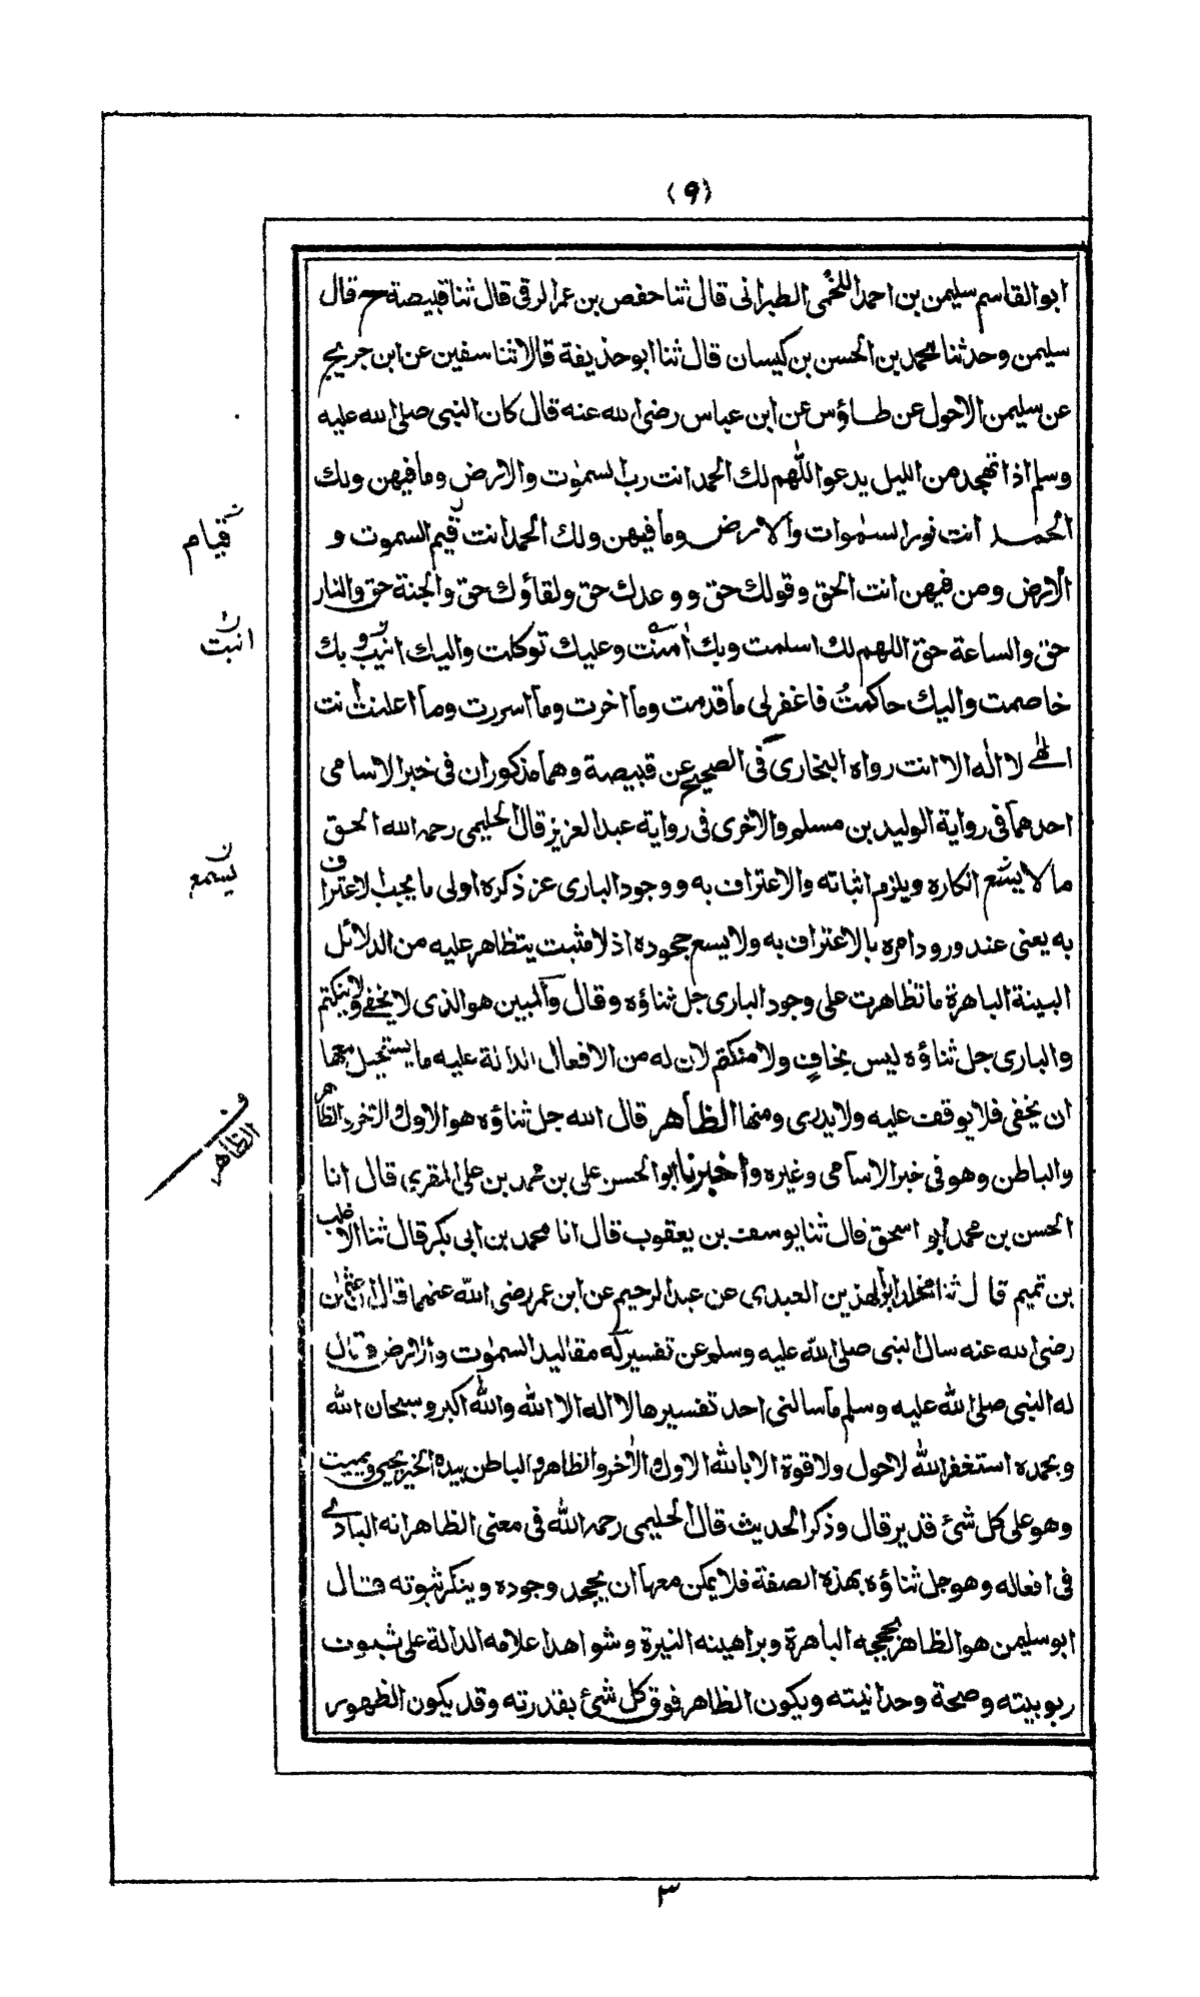 (۹)
ابو القاسم سليمن بن احمد اللخمى الطبرانى قال ثنا حفص بن عمر الرقى قال ثنا قبيصة ح قال
سليمن وحدثنا محمد بن الحسن بن كيسان قال ثنا ابو حذيفة قالا ثنا سفين عن ابن جريج
عن سليمن الاحول عن طاؤس عن ابن عباس رضى الله عنه قال كان النبى صلى الله عليه
وسلم اذا تهجد من الليل يدعو اللهم لك الحمد انت رب السموٰت والارض وما فيهن ولك
الحمد انت نور السمٰوات والارض وما فيهن ولك الحمد انت قيم السموت و
الارض ومن فيهن انت الحق وقولك حق ووعدك حق ولقاؤك حق والجنة حق والنار
حق والساعة حق اللهم لك اسلمت وبك اٰمنت وعليك توكلت واليك انيب وبك
خاصمت واليك حاكمتُ فاغفرلى ما قدمت وما اخرت وما اسررت وما اعلنت انت
الٰهى لا اله الا انت رواه البخارى فى الصحيح عن قبيصة وهما مذكوران فى خبر الاسامى
احدهما فى رواية الوليد بن مسلم والاخرى فى رواية عبد العزيز قال الحليمى رحمه الله الحق
ما لا يشع انكاره ويلزم اثباته والاعتراف به ووجود البارى عز ذكره اولى ما يجب الاعتراف
به يعنى عند ورود امره بالاعتراف به ولا يسع جحوده اذ لا مثبت يتظاهر عليه من الدلائل
البينة الباهرة ما تظاهرت على وجود البارى جل ثناؤه وقال والمبين هو الذى لا يخفى ولا ينكتم
والبارى جل ثناؤه ليس بخافٍ ولا منكتم لان له من الافعال الدالة عليه ما يستحيل معها
ان يخفى فلا يوقف عليه ولا يدرى ومنها الظاهر قال الله جل ثناؤه هو الاول والاخر والظاهر
والباطن وهو فى خبر الاسامى وغيره واخبرنا ابو الحسن على بن محمد بن على المقرى قال انا
الحسن بن محمد ابو اسحق قال ثنا يوسف بن يعقوب قال انا محمد بن ابى بكر قال ثنا الاغلب
بن تميم قال ثنا مخلد ابو الهذيل العبدى عن عبد الرحيم عن ابن عمر رضى الله عنهما قال ان عثمٰن
رضى الله عنه سال النبى صلى الله عليه وسلم عن تفسير له مقاليد السمٰوت والارض فقال
له النبى صلى الله عليه وسلم ما سالنى احد تفسيرها لا اله الا الله والله اكبر وسبحان الله
وبحمده استغفر الله لا حول ولا قوة الا بالله الاول والاٰخر والظاهر والباطن بيده الخير يحيى ويميت
وهو على كل شئ قدير قال وذكر الحديث قال الحليمى رحمه الله فى معنى الظاهر انه البادى
فى افعاله وهو جل ثناؤه بهذه الصفة فلا يمكن معها ان يجحد وجوده وينكر ثبوته قال
ابو سليمن هو الظاهر بحججه الباهرة وبراهينه النيرة وشواهد اعلامه الدالة على ثبوت
ربوبيته وصحة وحدانيته ويكون الظاهر فوق كل شئ بقدرته وقد يكون الظهور
ن قيام
ن انبت
ن يسمع
ف الظاهر
٣